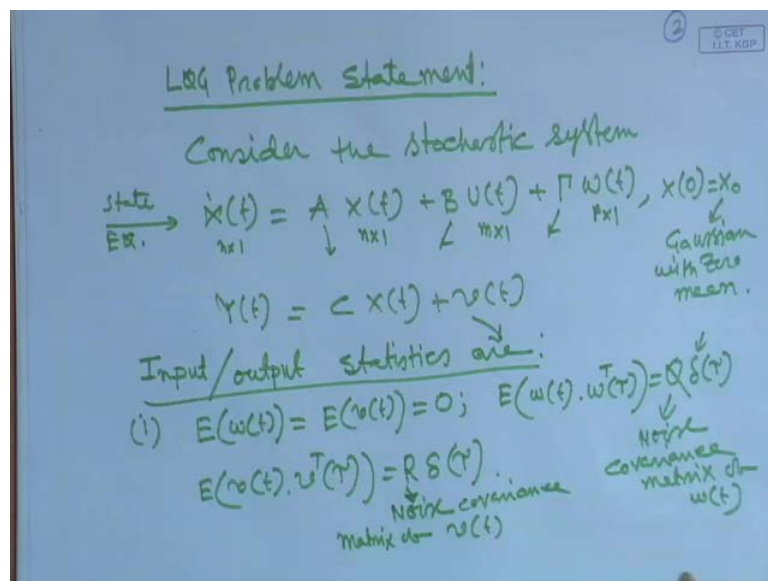 ②
© CET
I.I.T. KGP
LQG Problem Statement:
Consider the stochastic system
State Eq. → ẋ(t) = A x(t) + B u(t) + Γ w(t), x(0) = x₀
n×1 n×1 m×1 p×1
Gaussian
with zero
mean.
Y(t) = C x(t) + v(t)
Input/output statistics are:
(i) E(w(t)) = E(v(t)) = 0; E(w(t).wᵀ(τ)) = Q δ(τ)
Noise
covariance
matrix of
w(t)
E(v(t).vᵀ(τ)) = R δ(τ).
Noise covariance
matrix of v(t)